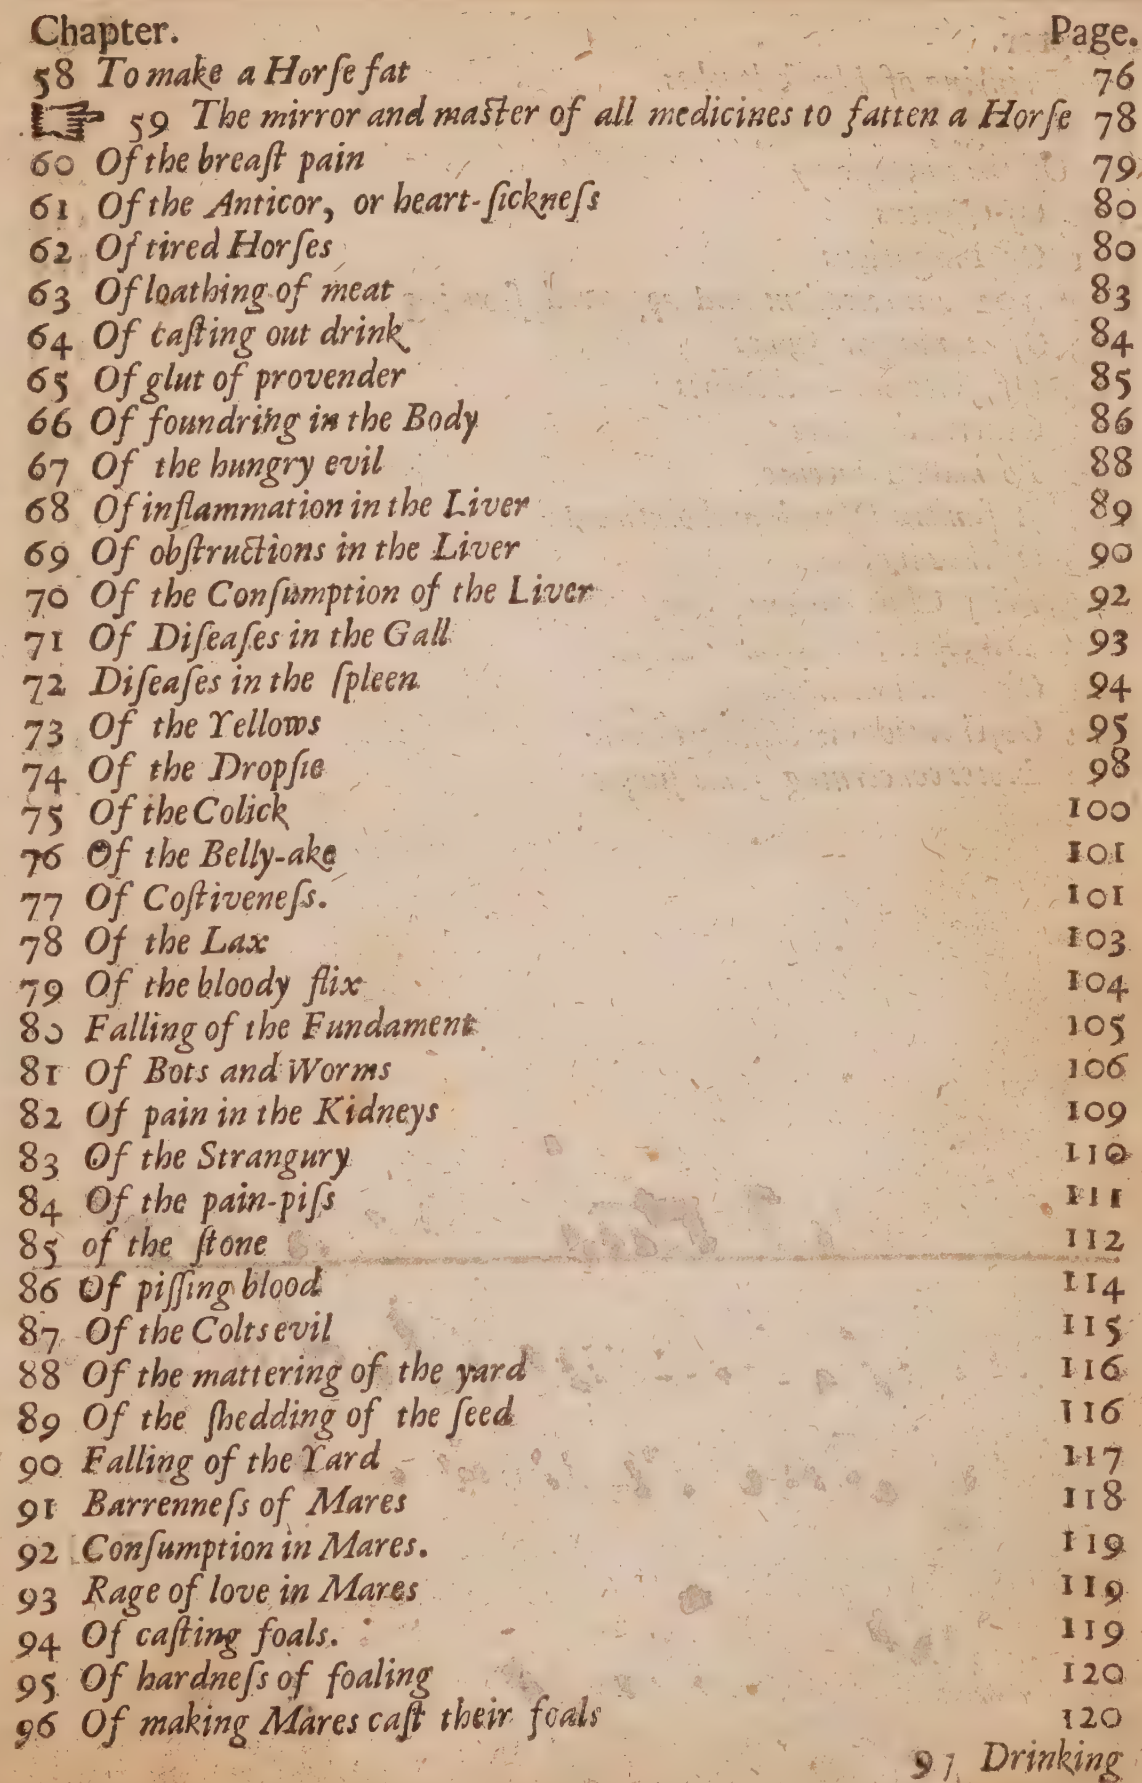 Chapter. Page.
58 To make a Horſe fat 76
☞ 59 The mirror and maſter of all medicines to fatten a Horſe 78
60 Of the breaſt pain 79
61 Of the Anticor, or heart-ſickneſs 80
62 Of tired Horſes 80
63 Of loathing of meat 83
64 Of caſting out drink 84
65 Of glut of provender 85
66 Of foundring in the Body 86
67 Of the hungry evil 88
68 Of inflammation in the Liver 89
69 Of obſtructions in the Liver 90
70 Of the Conſumption of the Liver 92
71 Of Diſeaſes in the Gall 93
72 Diſeaſes in the ſpleen 94
73 Of the Yellows 95
74 Of the Dropſie 98
75 Of the Colick 100
76 Of the Belly-ake 101
77 Of Coſtiveneſs. 101
78 Of the Lax 103
79 Of the bloody flix 104
80 Falling of the Fundament 105
81 Of Bots and Worms 106
82 Of pain in the Kidneys 109
83 Of the Strangury 110
84 Of the pain-piſs 111
85 of the ſtone 112
86 Of piſſing blood 114
87 Of the Colts evil 115
88 Of the mattering of the yard 116
89 Of the ſhedding of the ſeed 116
90 Falling of the Yard 117
91 Barrenneſs of Mares 118
92 Conſumption in Mares. 119
93 Rage of love in Mares 119
94 Of caſting foals. 119
95 Of hardneſs of foaling 120
96 Of making Mares caſt their foals 120
97 Drinking